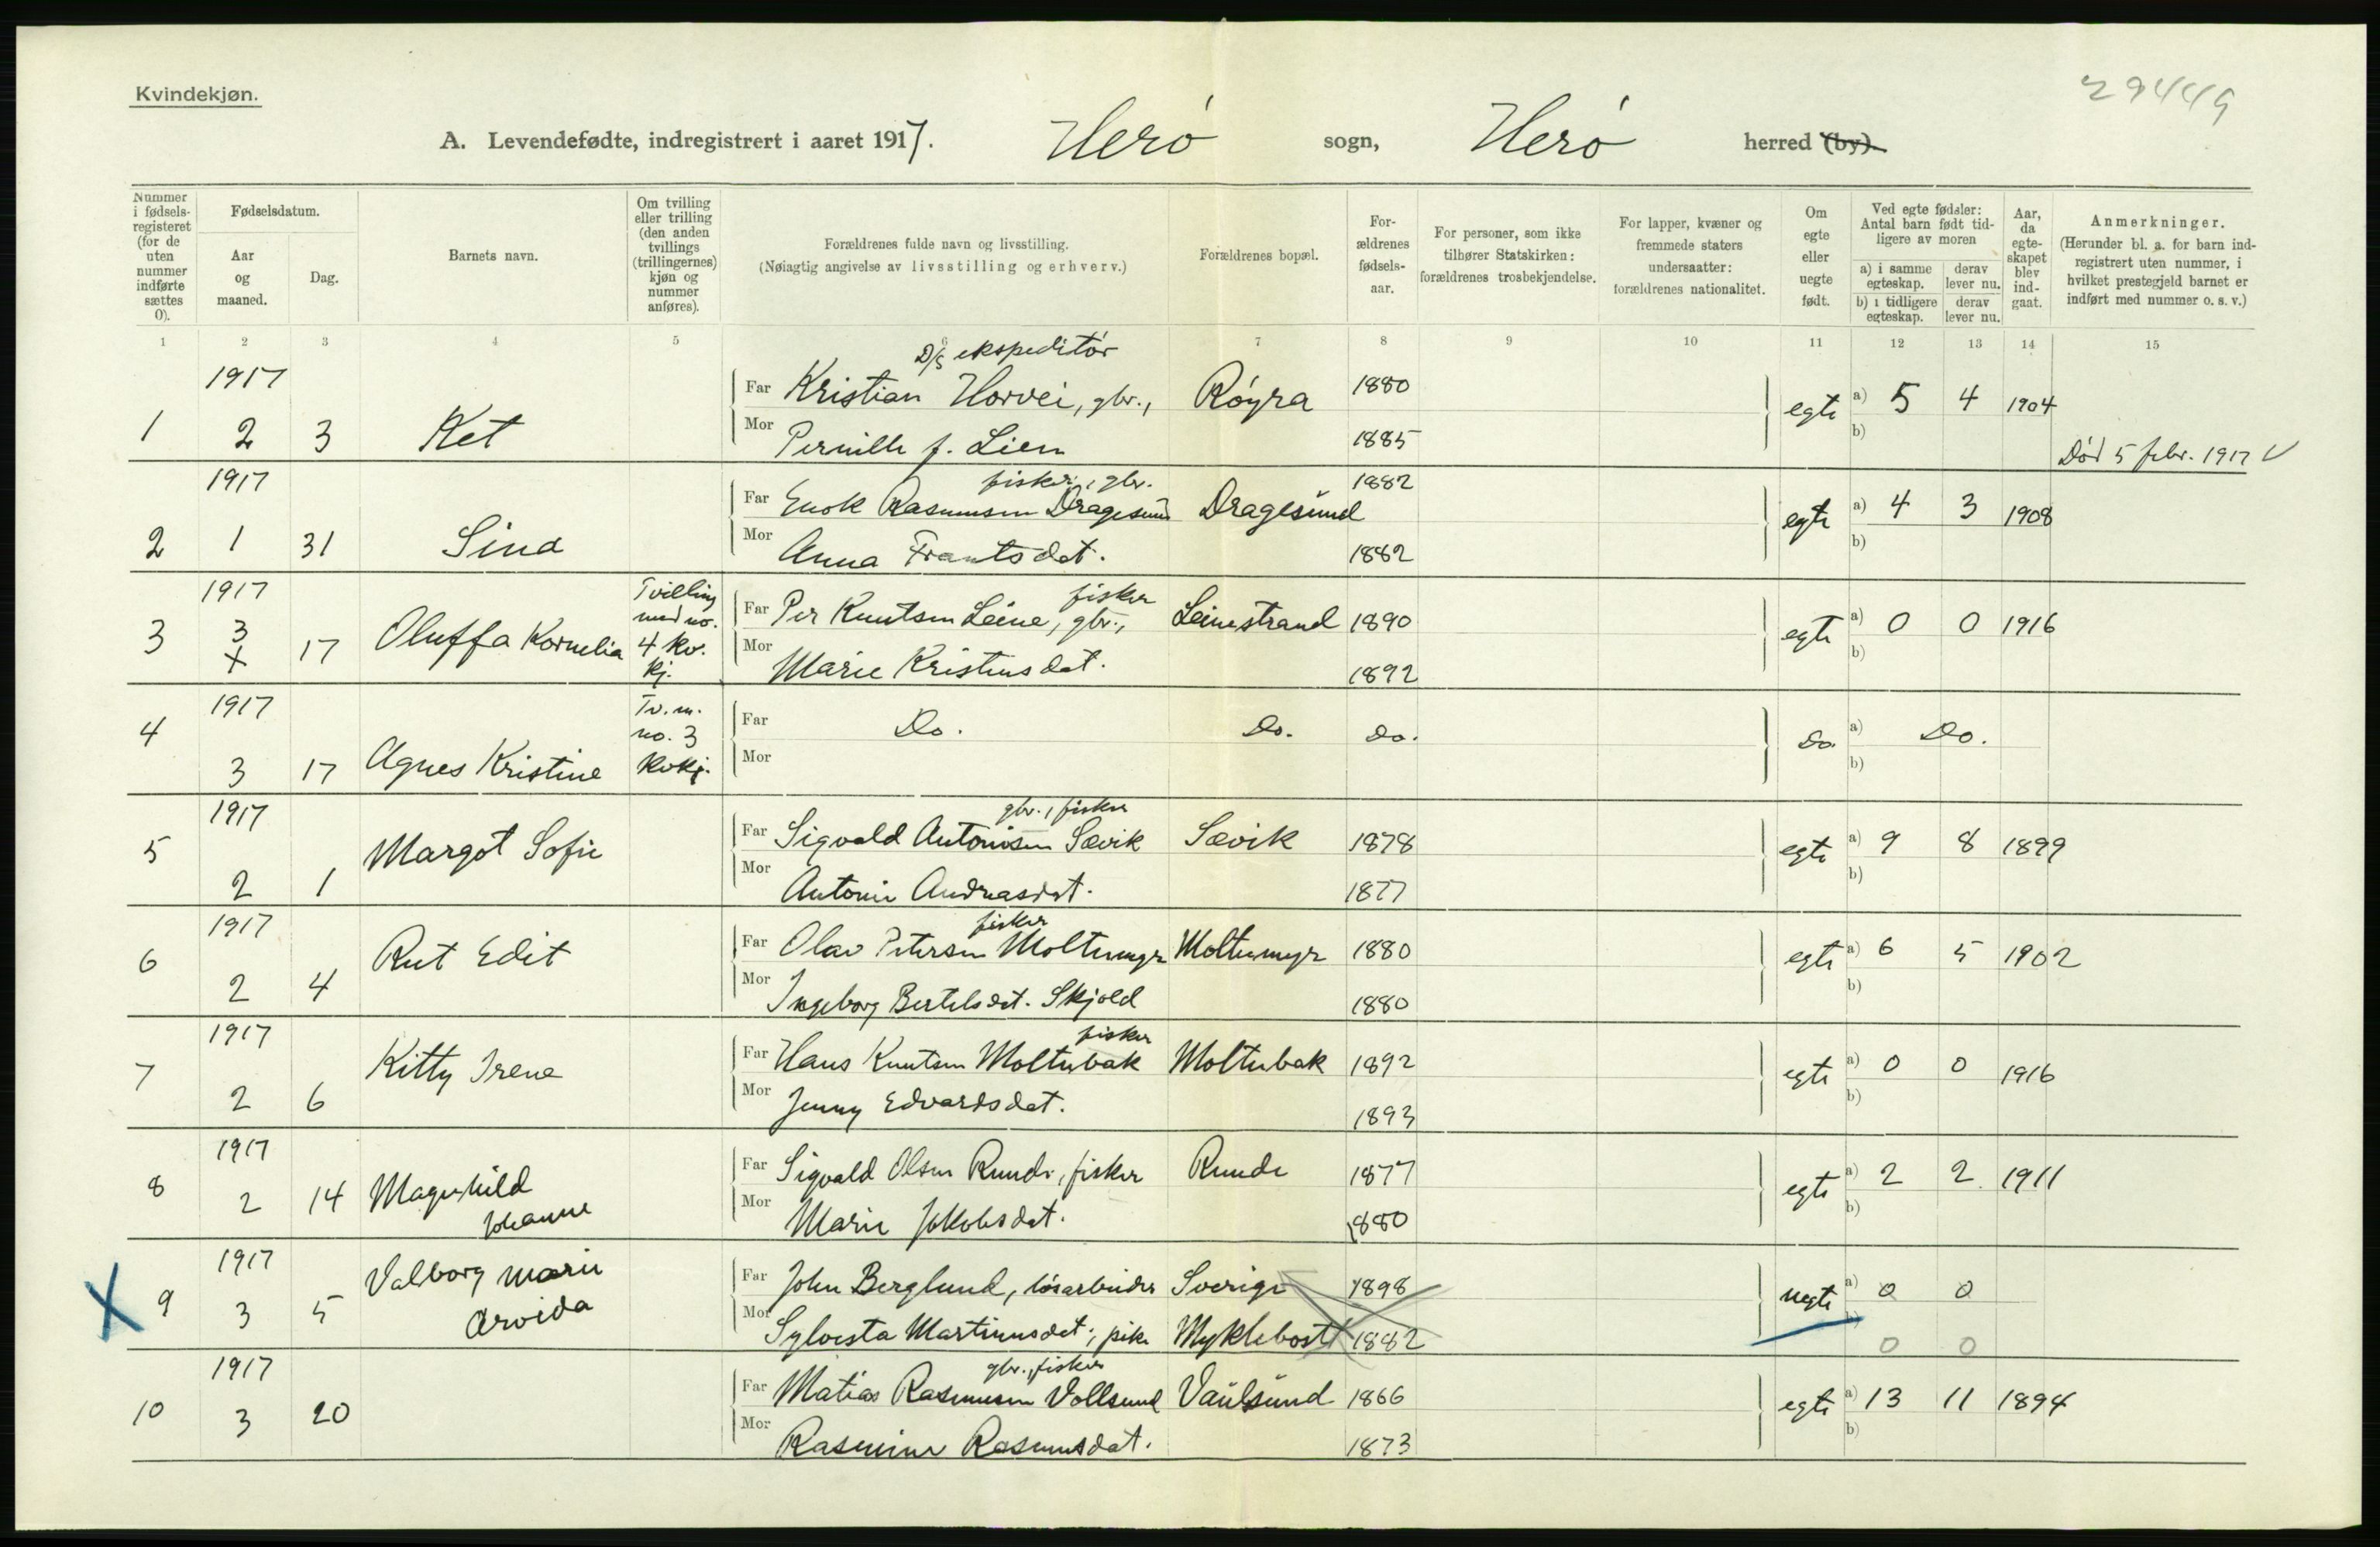 Kvindekjøn.
29449
A. Levendefødte, indregistrert i aaret 1917. Herø sogn, Herø herred (by).
Nummer i fødselsregisteret (for de uten nummer indførte sættes 0).
Fødselsdatum.
Aar og maaned.
Dag.
Barnets navn.
Om tvilling eller trilling (den anden tvillings (trillingernes) kjøn og nummer anføres).
Forældrenes fulde navn og livsstilling.
(Nøiagtig angivelse av livsstilling og erhverv.)
Forældrenes bopæl.
Forældrenes fødselsaar.
For personer, som ikke tilhører Statskirken: forældrenes trosbekjendelse.
For lapper, kvæner og fremmede staters undersaatter: forældrenes nationalitet.
Om egte eller uegte født.
Ved egte fødsler: Antal barn født tidligere av moren
a) i samme egteskap. derav lever nu.
b) i tidligere egteskap. derav lever nu.
Aar, da egteskapet blev indgaat.
Anmerkninger.
(Herunder bl. a. for barn indregistrert uten nummer, i hvilket prestegjeld barnet er indført med nummer o. s. v.)
1 2 3 4 5 6 7 8 9 10 11 12 13 14 15
D/S ekspeditør
1917 Far Kristian Horvei, gbr., Røyra 1880 egte a) 5 4 1904
1 2 3 Ket Mor Pernille f. Lien 1885 b) Død 5 febr. 1917 V
fisker, gbr.
1917 Far Enok Rasmussen Dragesund Dragesund 1882 egte a) 4 3 1908
2 1 31 Sina Mor Anna Frantsdat. 1882 b)
1917 Tvilling med no. 4 kv. kj. fisker
3 3 x 17 Oluffa Kornelia Far Per Knutsen Leine, gbr., Leinestrand 1890 egte a) 0 0 1916
Mor Marie Kristensdat. 1892 b)
1917 Tv. m. no. 3 kvkj.
4 3 17 Agnes Kristine Far Do. Do. Do. Do. a) Do.
Mor b)
gbr., fisker
1917 Far Sigvald Antonisen Sævik Sævik 1878 egte a) 9 8 1899
5 2 1 Margot Sofie Mor Antonie Andreasdat. 1877 b)
fisker
1917 Far Olav Petersen Moltumyr Moltumyr 1880 egte a) 6 5 1902
6 2 4 Rut Edit Mor Ingeborg Bertelsdat. Skjold 1880 b)
fisker
1917 Far Hans Knutsen Moltubak Moltubak 1892 egte a) 0 0 1916
7 2 6 Kitty Irene Mor Jenny Edvardsdat. 1893 b)
1917 Far Sigvald Olsen Runde, fisker Runde 1877 egte a) 2 2 1911
8 2 14 Magnhild Johanne Mor Marie Jakobsdat. 1880 b)
1917 Far John Berglund, løsarbeider Sverige 1898 uegte a) 0 0
X 9 3 5 Valborg Marie Arvida Mor Sylvesta Martinusdat., pike Myklebost 1882 b) 0 0
gbr., fisker
1917 Far Matias Rasmussen Vollsund Vaulsund 1866 egte a) 13 11 1894
10 3 20 Mor Rasmine Rasmusdat. 1873 b)